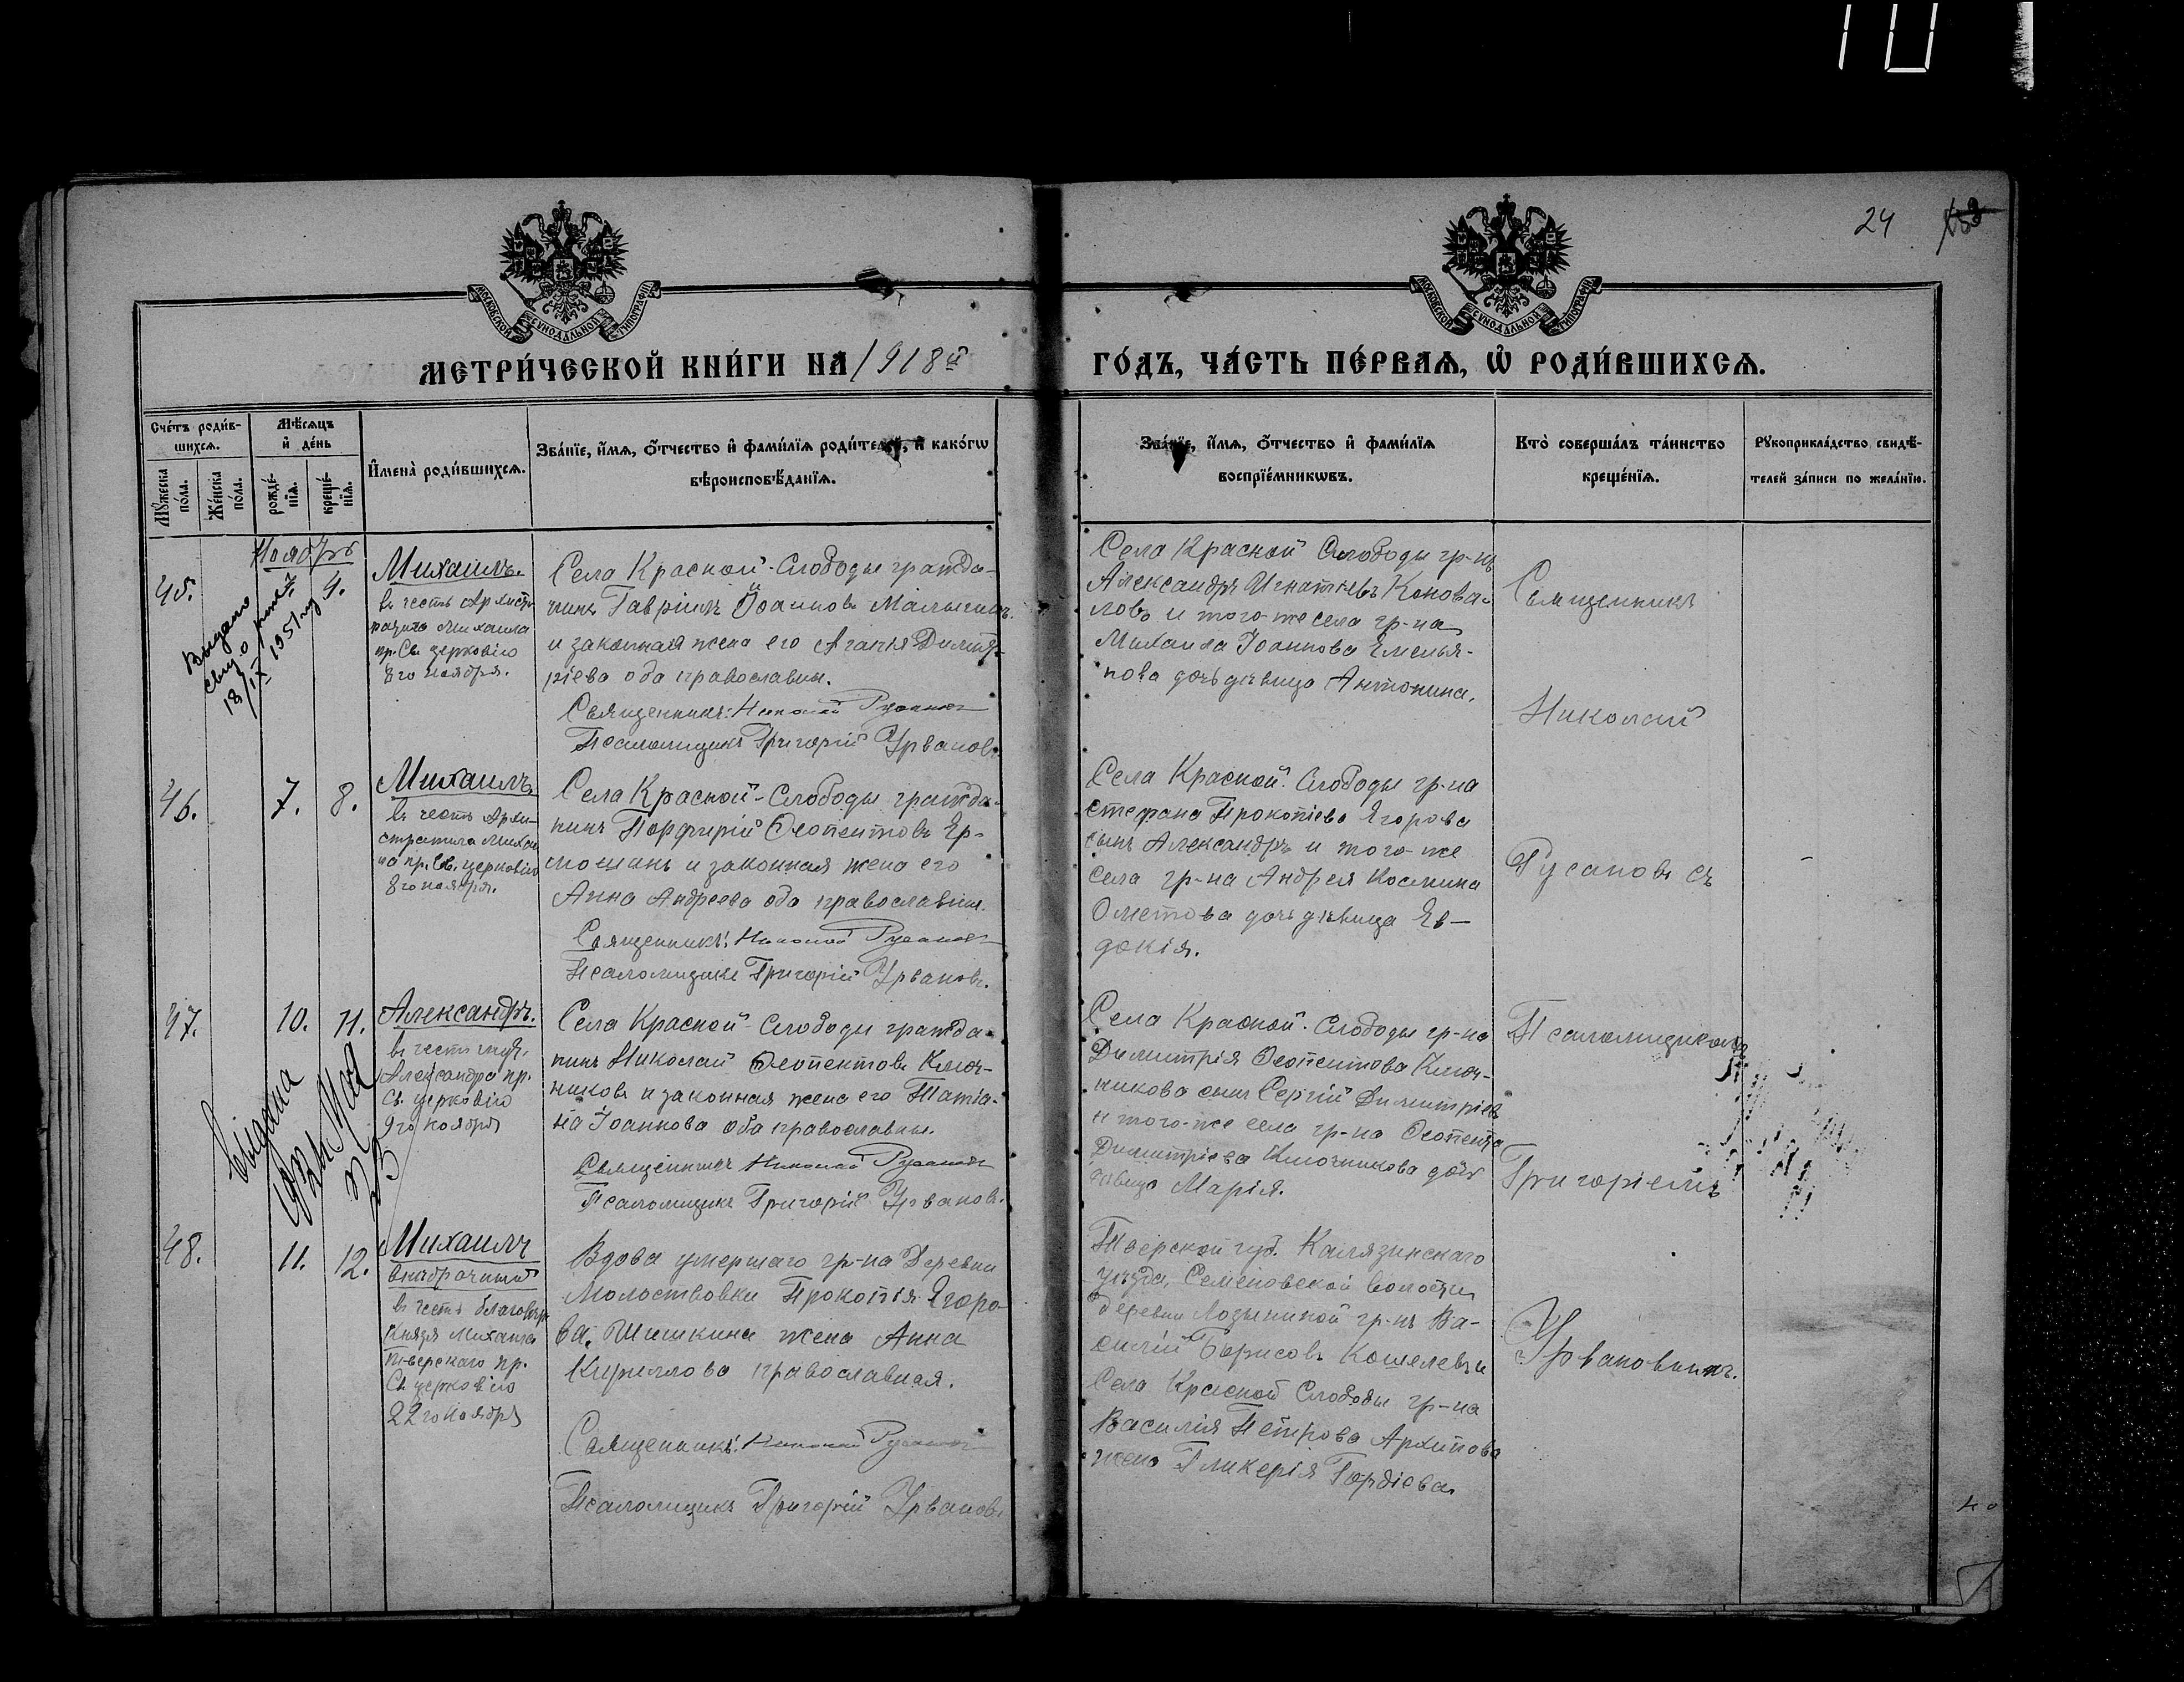 10
24
МОСКОВСКОЙ СУНОДАЛЬНОЙ ТИПОГРАФІИ
МОСКОВСКОЙ СУНОДАЛЬНОЙ ТИПОГРАФІИ
МЕТРИ́ЧЕСКОЙ КНИ́ГИ НА 1918й
ГО́ДЪ, ЧА́СТЬ ПЕ́РВАѦ, Ѡ РОДИ́ВШИХСѦ.
Сче́тъ роди́в-
шихсѧ.
Мꙋ́жеска по́ла.
Же́нска по́ла.
Мѣ́сѧцъ и де́нь
рожде́-
нїѧ.
креще́-
нїѧ.
И҆мена̀ роди́вшихсѧ.
Зва́нїе, и҆́мѧ, ѻ҆́тчество и҆ фами́лїѧ роди́телей, и҆ како́гѡ
вѣроисповѣ́данїѧ.
Зва́нїе, и҆́мѧ, ѻ҆́тчество и҆ фами́лїѧ
воспрїе́мникѡвъ.
Кто̀ соверша́лъ та́инство
креще́нїѧ.
Рꙋкоприкла́дство свидѣ́-
телей за́писи по жела́нїю.
Ноябрь
45.
7
9.
Выдано
св-во
18/IX 1951 г
Михаилъ.
въ честь Архист
ратига Михаила
пр. Св. церковію
8го ноября.
Села Красной-Слободы гражда-
нинъ Гавріилъ Іоанновъ Малыгинъ
и законная жена его Агаѳія Димит-
ріева оба православны.
Священникъ: Николай Русановъ
Псаломщикъ Григорій Урвановъ
Села Красной Слободы гр-нъ
Александръ Игнатьевъ Конова-
ловъ и того-же села гр-на
Михаила Іоаннова Емелья-
нова дочь дѣвица Антонина.
46.
7.
8.
Михаилъ
въ честь Архи-
стратига Михаи
ла пр. Св. церковію
8го ноября.
Села Красной-Слободы гражда-
нинъ Порфирій Ѳеопентовъ Ер-
мошинъ и законная жена его
Анна Андреева оба православны.
Священникъ: Николай Русановъ
Псаломщикъ Григорій Урвановъ.
Села Красной-Слободы гр-на
Стефана Прокопіева Ягорова
сынъ Александръ и того-же
села гр-на Андрея Космина
Ометова дочь дѣвица Ев-
докія.
47.
10.
11.
выдана
Александръ.
въ честь муч.
Александра пр.
Св. церковію
9го ноября
Села Красной-Слободы гражда-
нинъ Николай Ѳеопентовъ Ключ-
никовъ и законная жена его Татіа-
на Іоаннова оба православны.
Священникъ Николай Русановъ
Псаломщикъ Григорій Урвановъ.
Села Красной-Слободы гр-на
Димитрія Ѳеопентова Ключ-
никова сынъ Сергій Димитріевъ
и того-же села гр-на Ѳеопента
Димитріева Ключникова дочь
дѣвица Марія.
48.
11.
12.
Михаилъ
внѣбрачный
въ честь благовѣр
Князя Михаила
Тверскаго пр.
Св. церковію
22го ноября
Вдова умершаго гр-на Деревни
Молоствовки Прокопія Ягоро-
ва Шишкина жена Анна
Кириллова православная.
Священникъ: Николай Русановъ
Псаломщикъ Григорій Урвановъ
Тверской губ. Калязинскаго
уѣзда, Семеновской волости
деревни Лозыниной гр-нъ Ва-
силій Борисовъ Кошелевъ и
Села Красной Слободы гр-на
Василія Петрова Архипова
жена Гликерія Гордіева.
Священникъ
Николай
Русановъ съ
Псаломщикомъ
Григоріемъ
Урвановымъ.